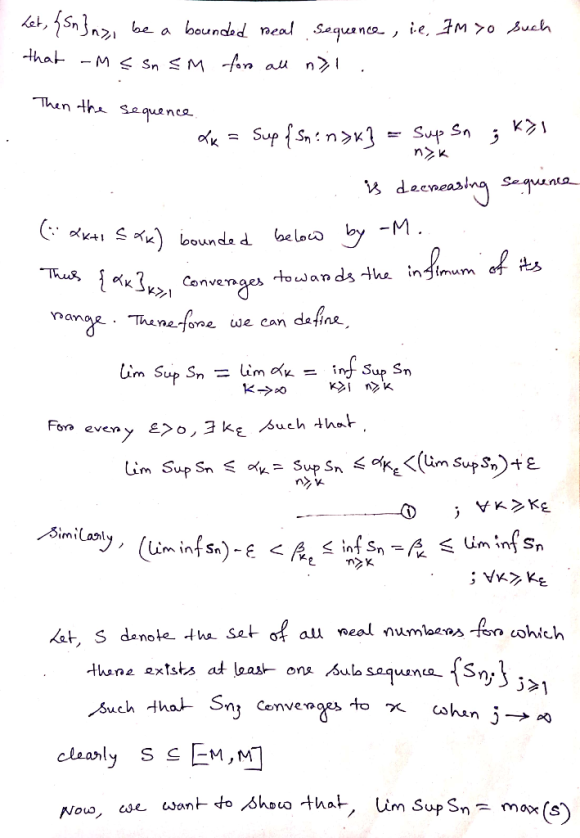 Let, {Sn}n≥1 be a bounded real sequence, i.e, ∃M>0 such
that -M ≤ Sn ≤ M for all n≥1.
Then the sequence
αk = Sup {Sn : n≥k} = Sup Sn ; k≥1
n≥k
is decreasing sequence
(∵ αk+1 ≤ αk) bounded below by -M.
Thus {αk}k≥1 converges towards the infimum of its
range. Therefore we can define,
lim Sup Sn = lim αk = inf Sup Sn
k→∞ k≥1 n≥k
For every ε>0, ∃ kε such that,
lim Sup Sn ≤ αk = Sup Sn ≤ αkε < (lim Sup Sn) + ε
n≥k
① ; ∀k≥kε
Similarly, (lim inf Sn) - ε < βkε ≤ inf Sn = βk ≤ lim inf Sn
n≥k
; ∀k≥kε
Let, S denote the set of all real numbers for which
there exists at least one subsequence {Snj}j≥1
such that Snj converges to x when j→∞
clearly S ⊆ [-M, M]
Now, we want to show that, lim Sup Sn = max(S)